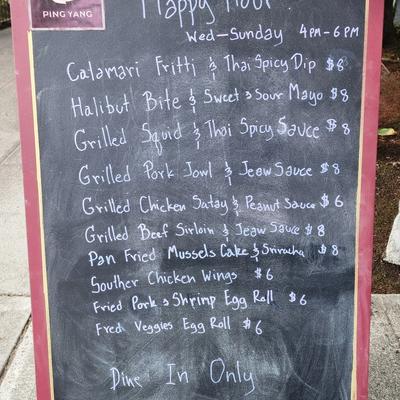 PING YANG
Happy Hour!
Wed-Sunday 4PM-6PM
Calamari Fritti & Thai Spicy Dip $8
Halibut Bite & Sweet & Sour Mayo $8
Grilled Squid & Thai Spicy Sauce $8
Grilled Pork Jowl & Jeaw Sauce $8
Grilled Chicken Satay & Peanut Sauce $6
Grilled Beef Sirloin & Jeaw Sauce $8
Pan Fried Mussels Cake & Sriracha $8
Souther Chicken Wings $6
Fried Pork & Shrimp Egg Roll $6
Fried Veggies Egg Roll $6
Dine In Only